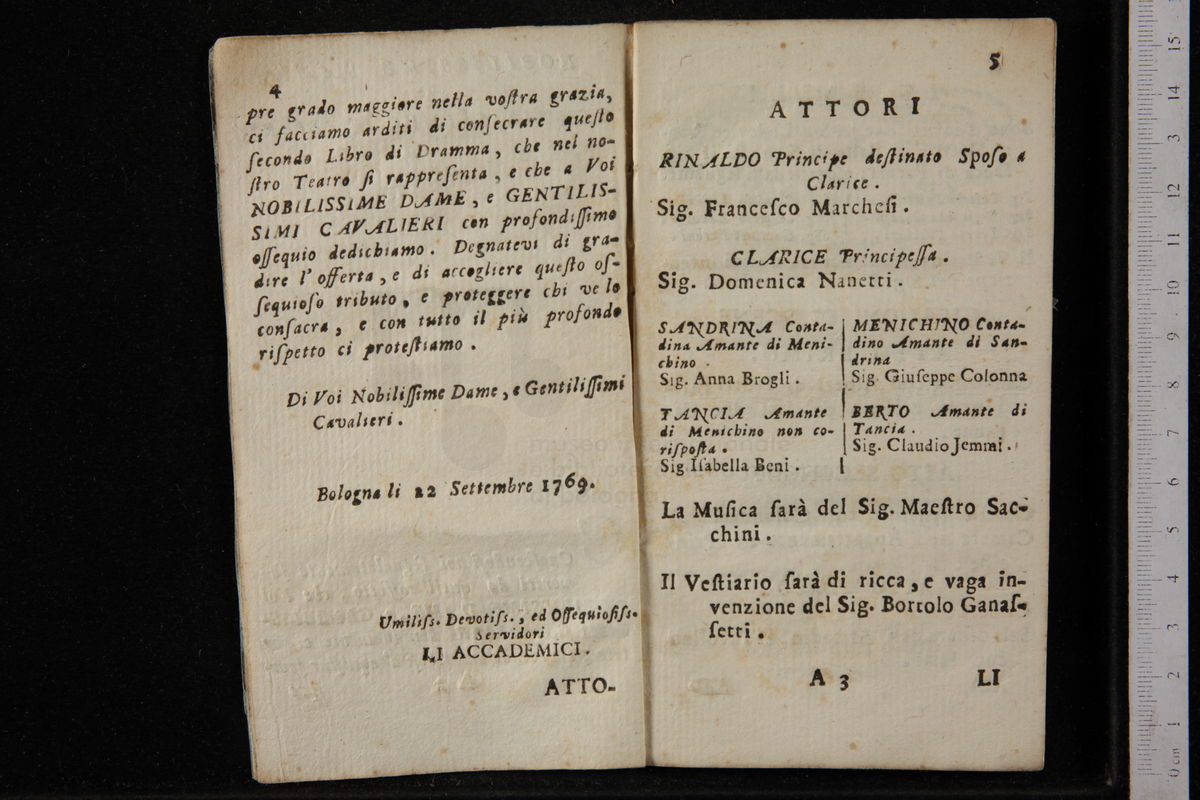 4
pre grado maggiore nella voſtra grazia,
ci facciamo arditi di conſecrare queſto
ſecondo Libro di Dramma, che nel no-
ſtro Teatro ſi rappreſenta, e che a Voi
NOBILISSIME DAME, e GENTILIS-
SIMI CAVALIERI con profondiſſimo
oſſequio dedichiamo. Degnatevi di gra-
dire l'offerta, e di accogliere queſto oſ-
ſequioſo tributo, e proteggere chi ve lo
conſacra, e con tutto il più profondo
riſpetto ci proteſtiamo.
Di Voi Nobiliſſime Dame, e Gentiliſſimi
Cavalieri.
Bologna li 22 Settembre 1769.
Umiliſs. Devotiſs., ed Oſſequioſiſs.
Servidori
LI ACCADEMICI.
ATTO-
5
ATTORI
RINALDO Principe deſtinato Spoſo a
Clarice.
Sig. Franceſco Marcheſi.
CLARICE Principeſſa.
Sig. Domenica Nanetti.
SANDRINA Conta-
dina Amante di Meni-
chino
Sig. Anna Brogli.
MENICHINO Conta-
dino Amante di San-
drina
Sig. Giuſeppe Colonna
TANCIA Amante
di Menichino non co-
riſpoſta.
Sig Iſabella Beni.
BERTO Amante di
Tancia.
Sig. Claudio Jemmi.
La Muſica ſarà del Sig. Maeſtro Sac-
chini.
Il Veſtiario ſarà di ricca, e vaga in-
venzione del Sig. Bortolo Ganaſ-
ſetti.
A 3
LI
0 cm 1 2 3 4 5 6 7 8 9 10 11 12 13 14 15